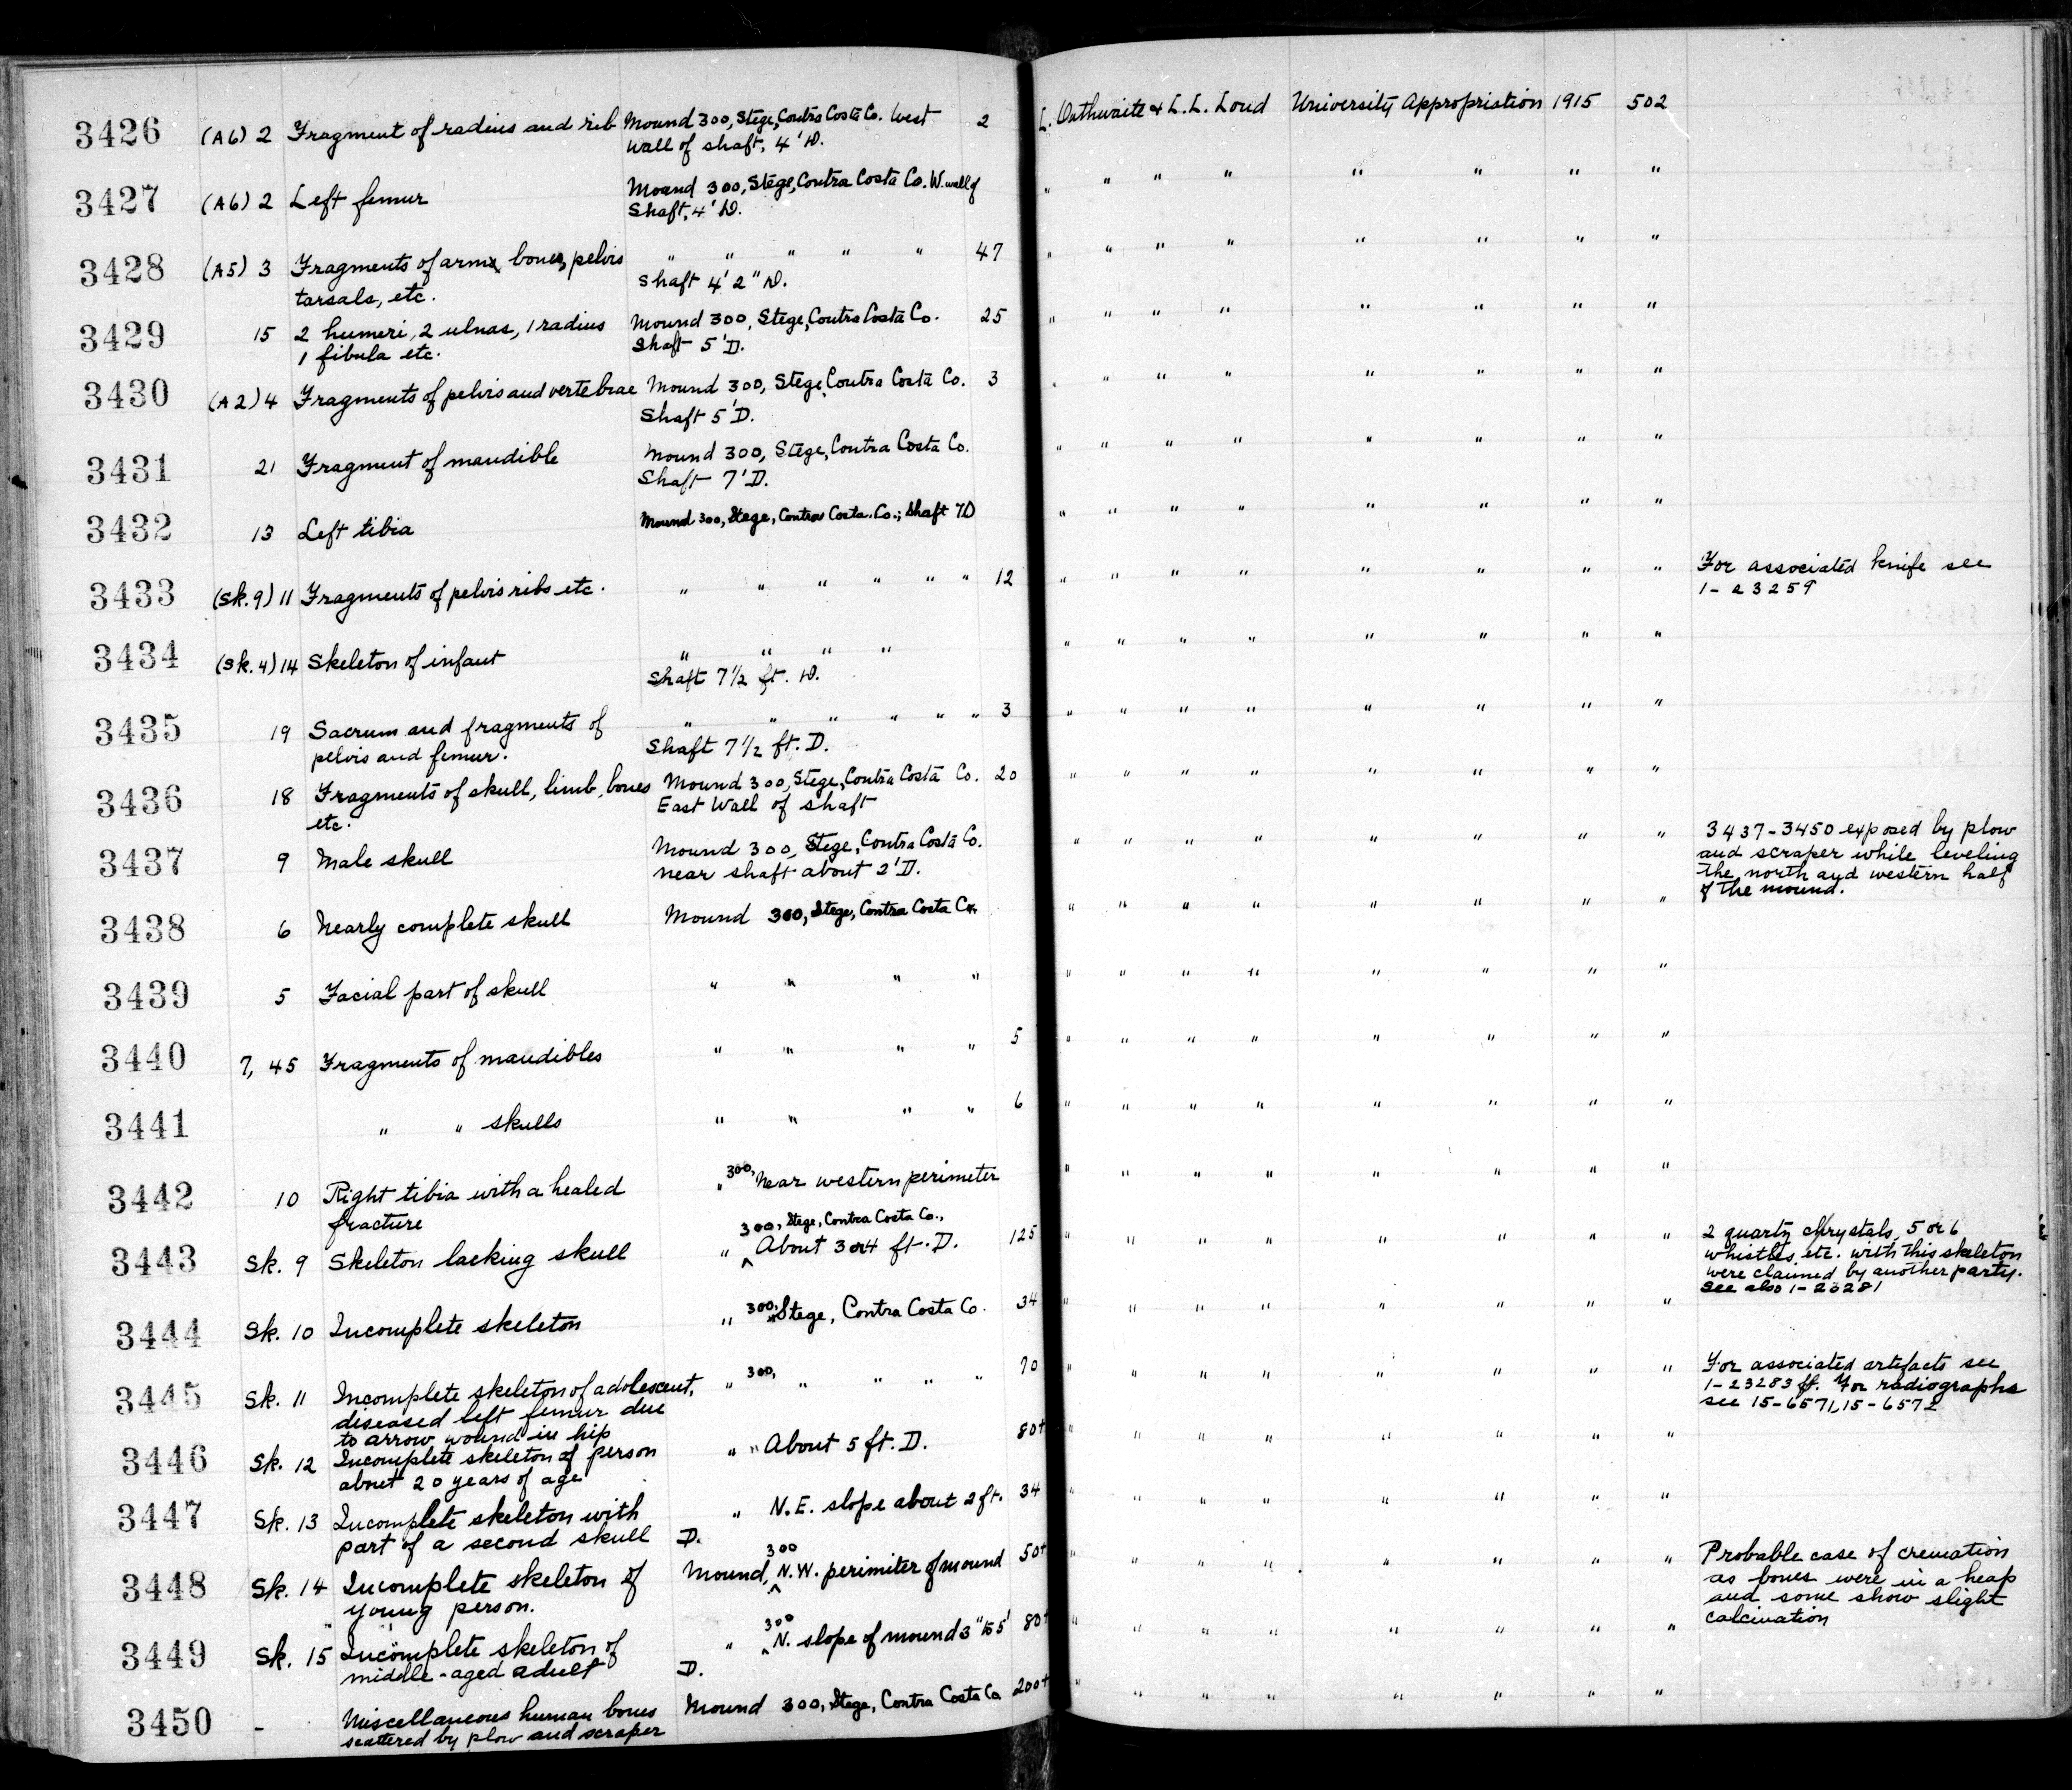 3426 (A6) 2 Fragment of radius and rib Mound 300, Stege, Contra Costa Co. West 2 L. Outhwaite & L.L. Loud University Appropriation 1915 502
wall of shaft, 4' D.
3427 (A6) 2 Left femur Mound 300, Stege, Contra Costa Co. W. wall of " " " " " " " "
Shaft, 4' D.
3428 (A5) 3 Fragments of arm bones, pelvis " " " " " 47 " " " " " " " "
tarsals, etc. Shaft 4' 2" D.
3429 15 2 humeri, 2 ulnas, 1 radius Mound 300, Stege, Contra Costa Co. 25 " " " " " " " "
1 fibula etc. Shaft 5' D.
3430 (A2) 4 Fragments of pelvis and vertebrae Mound 300, Stege, Contra Costa Co. 3 " " " " " " " "
Shaft 5' D.
3431 21 Fragment of mandible Mound 300, Stege, Contra Costa Co. " " " " " " " "
Shaft 7' D.
3432 13 Left tibia Mound 300, Stege, Contra Costa Co.; Shaft 7D " " " " " " " "
3433 (Sk. 9) 11 Fragments of pelvis ribs etc. " " " " " " 12 " " " " " " " " For associated knife see
1-23259
3434 (Sk. 4) 14 Skeleton of infant " " " " " " " " " " " "
Shaft 7 1/2 ft. D.
3435 19 Sacrum and fragments of " " " " " " 3 " " " " " " " "
pelvis and femur. Shaft 7 1/2 ft. D.
3436 18 Fragments of skull, limb, bones Mound 300, Stege, Contra Costa Co. 20 " " " " " " " "
etc. East Wall of shaft
3437 9 Male skull Mound 300, Stege, Contra Costa Co. " " " " " " " " 3437-3450 exposed by plow
near shaft about 2' D. and scraper while leveling
the north and western half
of the mound.
3438 6 Nearly complete skull Mound 300, Stege, Contra Costa Co. " " " " " " " "
3439 5 Facial part of skull " " " " " " " " " " " "
3440 7, 45 Fragments of mandibles " " " " 5 " " " " " " " "
3441 " " skulls " " " " 6 " " " " " " " "
3442 10 Right tibia with a healed " 300, Near western perimeter " " " " " " " "
fracture
300, Stege, Contra Costa Co.,
3443 Sk. 9 Skeleton lacking skull " ^ About 3 or 4 ft. D. 125 " " " " " " " " 2 quartz chrystals, 5 or 6
whistles, etc. with this skeleton
were claimed by another party.
See also 1-23281
3444 Sk. 10 Incomplete skeleton " 300, Stege, Contra Costa Co. 34 " " " " " " " "
3445 Sk. 11 Incomplete skeleton of adolescent, " 300, " " " " 70 " " " " " " " " For associated artefacts see
diseased left femur due 1-23283 ff. For radiographs
to arrow wound in hip see 15-6571, 15-6572
3446 Sk. 12 Incomplete skeleton of person " " About 5 ft. D. 80+ " " " " " " " "
about 20 years of age
3447 Sk. 13 Incomplete skeleton with " N.E. slope about 2 ft. 34 " " " " " " " "
part of a second skull D.
3448 Sk. 14 Incomplete skeleton of Mound, ^ 300 N.W. perimiter of mound 50+ " " " " " " " " Probable case of cremation
young person. as bones were in a heap
and some show slight
calcination
3449 Sk. 15 Incomplete skeleton of " ^ 300 N. slope of mound 3" to 5' 80+ " " " " " " " "
middle-aged adult D.
3450 - Miscellaneous human bones Mound 300, Stege, Contra Costa Co 200+ " " " " " " " "
scattered by plow and scraper